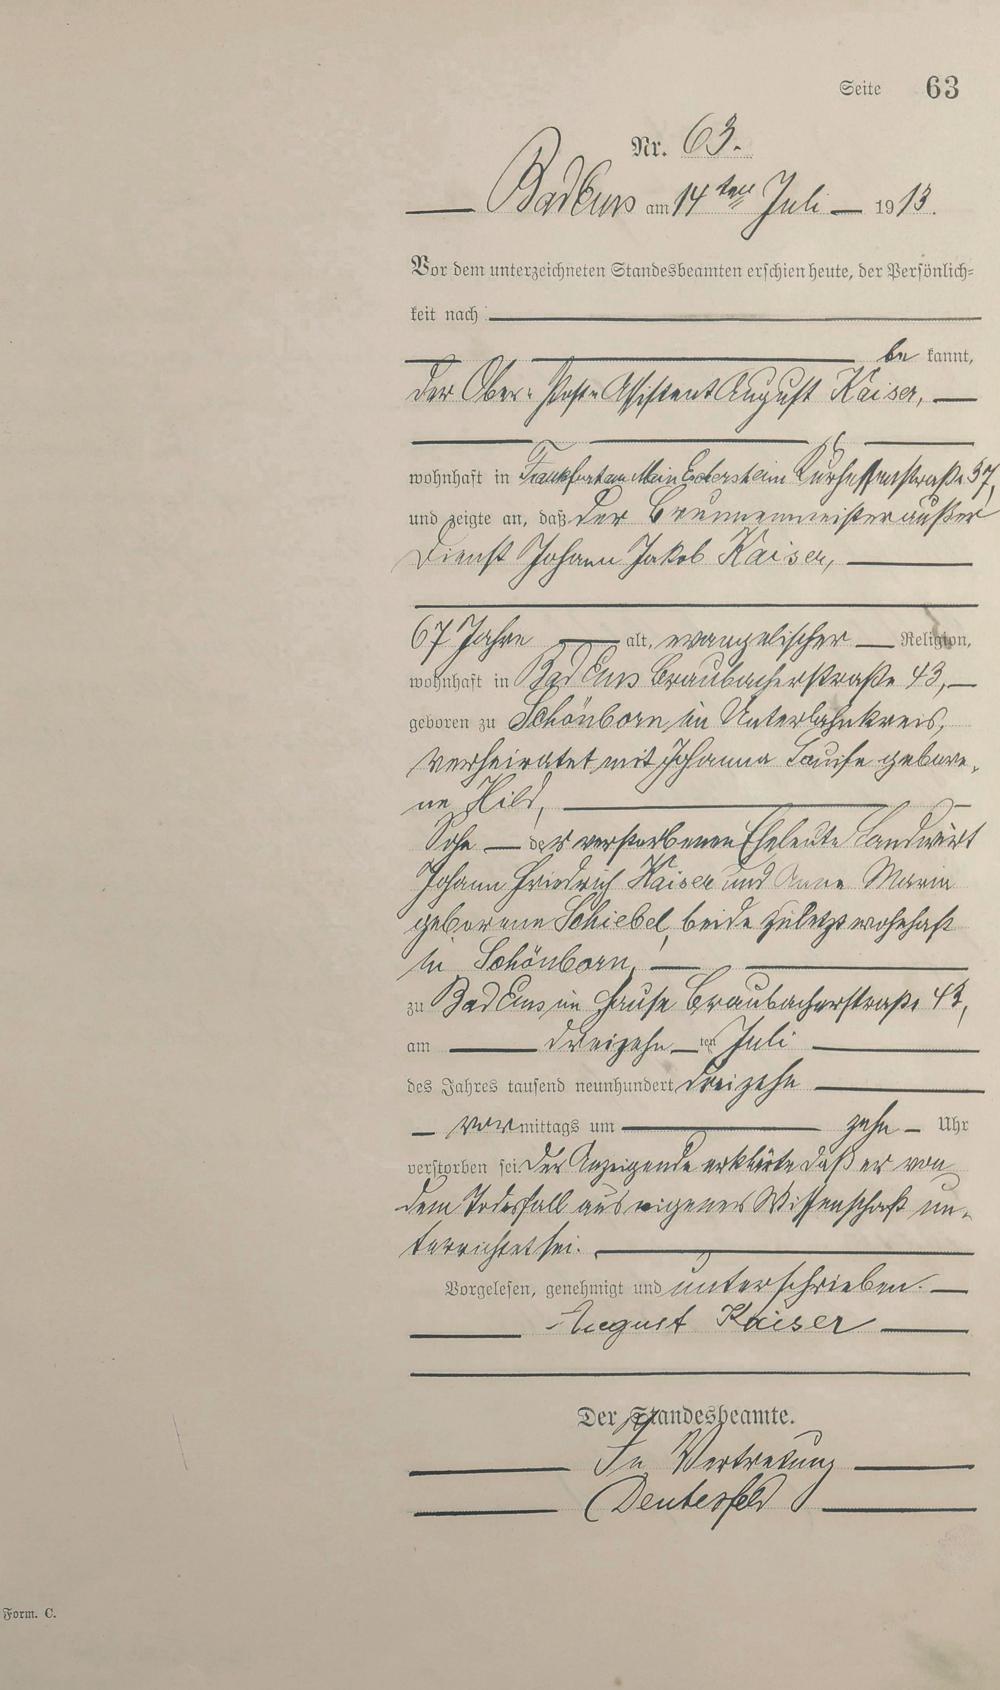 Seite 63
Nr. 63.
Bad Ems am 14ten Juli 1913.
Vor dem unterzeichneten Standesbeamten erschien heute, der Persönlich-
keit nach
be kannt,
der Ober-Post-Assistent August Kaiser,
wohnhaft in Frankfurt am Main Eckersheim Kurhessenstraße 37,
und zeigte an, daß der Brunnenmeister außer
Dienst Johann Jakob Kaiser,
67 Jahre alt, evangelischer Religion,
wohnhaft in Bad Ems Braubacherstraße 43,
geboren zu Schönborn im Unterlahnkreis,
verheiratet mit Johanna Louise gebore-
ne Hild,
Sohn der verstorbenen Eheleute Landwirt
Johann Friedrich Kaiser und Anna Maria
geborene Schiebel, beide zuletzt wohnhaft
in Schönborn,
zu Bad Ems im Hause Braubacherstraße 43,
am dreizehn ten Juli
des Jahres tausend neunhundert dreizehn
vor mittags um zehn Uhr
verstorben sei. Der Anzeigende erklärte daß er von
dem Todesfall aus eigener Wissenschaft un-
terrichtet sei.
Vorgelesen, genehmigt und unterschrieben.
August Kaiser
Der Standesbeamte.
In Vertretung
Form. C.